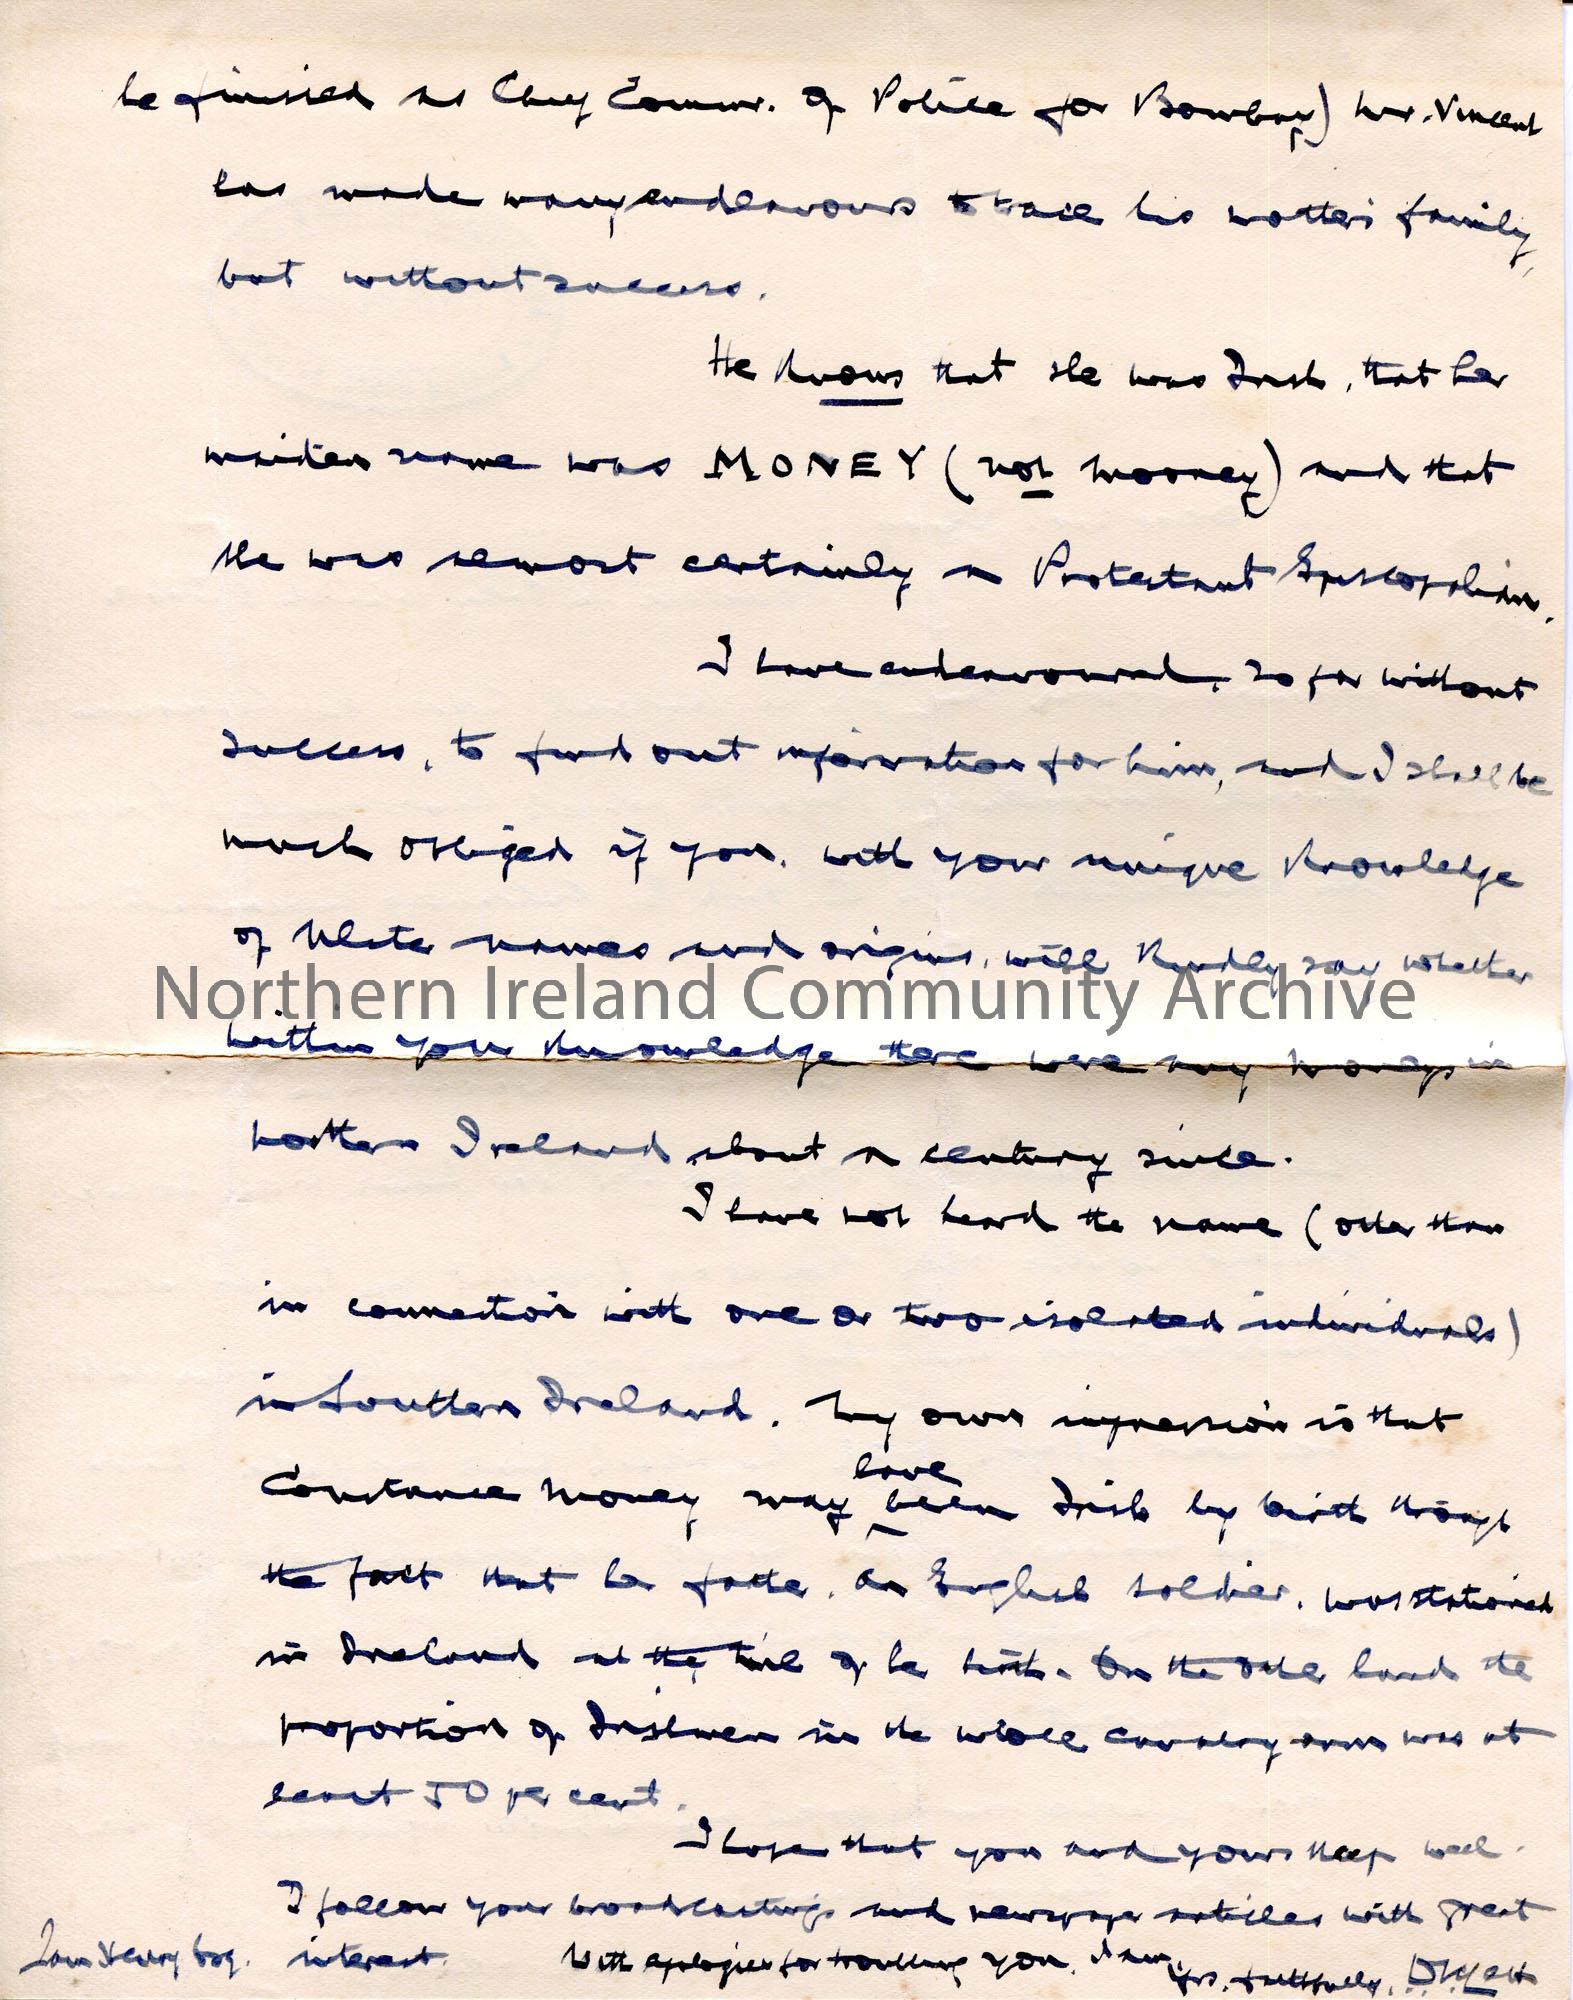 he finished as Chief Commr. of Police for Bombay) Mr. Vincent
has made many endeavours to trace his mother's family,
but without success.
He knows that she was Irish, that her
maiden name was MONEY (not Mooney) and that
she was almost certainly a Protestant Episcopalian.
I have endeavoured, so far without
success, to find out information for him, and I shall be
much obliged if you, with your unique knowledge
of Ulster names and origins, will kindly say whether
Northern Ireland Community Archive
within your knowledge there were any Moneys in
Northern Ireland about a century since.
I have not heard the name (other than
in connection with one or two isolated individuals)
in Southern Ireland. My own impression is that
Constance Money may have been Irish by birth through
the fact that her father, an English soldier, was stationed
in Ireland at the time of her birth. On the other hand the
proportion of Irishmen in the whole cavalry arm was at
least 50 per cent.
I hope that you and yours keep well.
I follow your broadcastings and newspaper articles with great
interest.
With apologies for troubling you, I am,
Yrs. faithfully,
Sam Henry Esq.